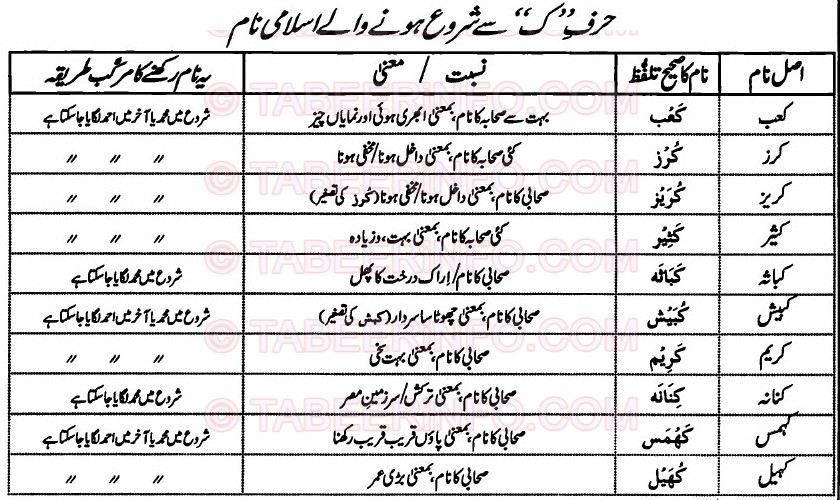 حرف ’’ک‘‘ سے شروع ہونے والے اسلامی نام
اصل نام | نام کا صحیح تلفّظ | نسبت / معنیٰ | یہ نام رکھنے کا مرکب طریقہ
کعب | کَعْب | بہت سے صحابہ کا نام، بمعنیٰ ابھری ہوئی اور نمایاں چیز | شروع میں محمد یا آخر میں احمد لگایا جاسکتا ہے
کرز | کُرْز | کئی صحابہ کا نام، بمعنیٰ داخل ہونا/مخفی ہونا | 〃 〃 〃
کریز | کُرَیْز | صحابی کا نام، بمعنیٰ داخل ہونا/مخفی ہونا (کُرز کی تصغیر) | 〃 〃 〃
کثیر | کَثِیْر | کئی صحابہ کا نام، بمعنیٰ بہت، و زیادہ | 〃 〃 〃
کباثہ | کَبَاثَه | صحابی کا نام/اراک درخت کا پھل | شروع میں محمد لگایا جاسکتا ہے
کبیش | کُبَیْش | صحابی کا نام، بمعنیٰ چھوٹا سا سردار (کبش کی تصغیر) | شروع میں محمد یا آخر میں احمد لگایا جاسکتا ہے
کریم | کَرِیْم | صحابی کا نام، بمعنیٰ بہت سخی | 〃 〃 〃
کنانہ | کِنَانَه | صحابی کا نام، بمعنیٰ ترکش/سرزمینِ مصر | شروع میں محمد لگایا جاسکتا ہے
کہمس | کَهْمَس | صحابی کا نام، بمعنیٰ پاؤں قریب قریب رکھنا | شروع میں محمد یا آخر میں احمد لگایا جاسکتا ہے
کہیل | کُهَیْل | صحابی کا نام، بمعنیٰ بڑی عمر | 〃 〃 〃
© TABEERINFO.COM
© TABEERINFO.COM
© TABEERINFO.COM
© TABEERINFO.COM
© TABEERINFO.COM